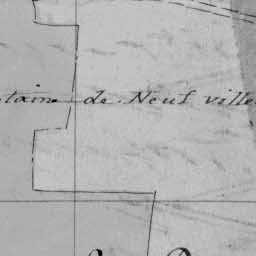 taine de Neuf ville